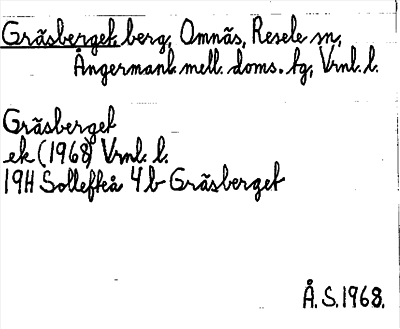 Gräsberget berg, Omnäs, Resele sn,
Ångermanl. mell. doms. tg, Vrnl. l.
Gräsberget
ek (1968) Vrnl. l.
19H Sollefteå 4b Gräsberget
Å.S. 1968.